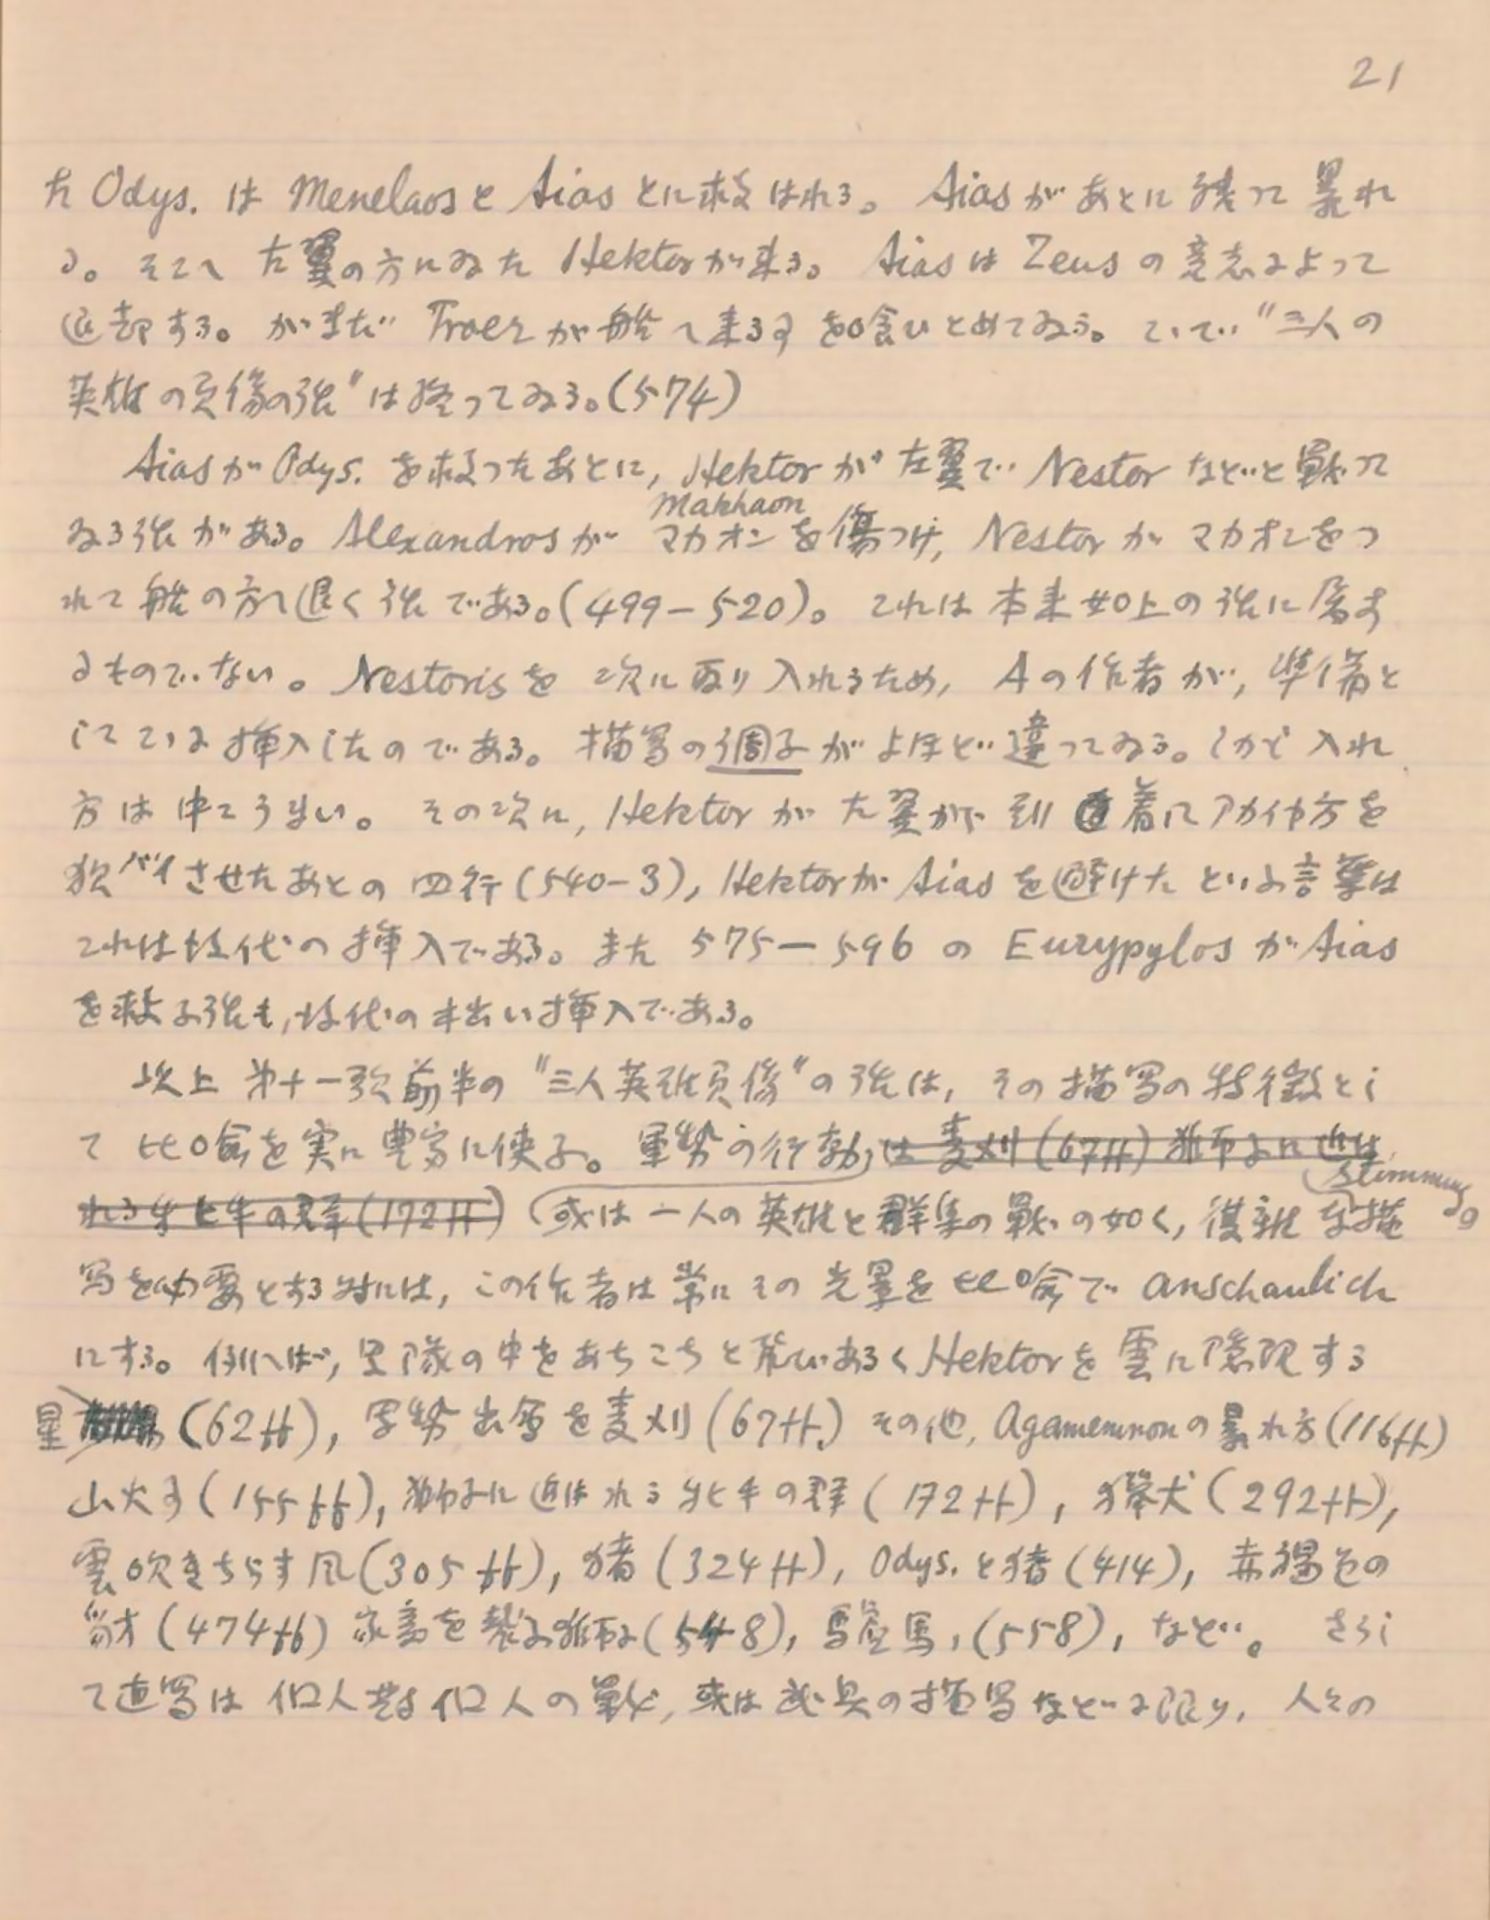 21
た Odys. は Menelaos と Aias とに救はれる。 Aias があとに残って 暴れ
る。そこへ 左翼の方にゐた Hektor が来る。 Aias は Zeus の意志によって
退却する。がまだ Troer が船へ来るのを喰ひとめてゐる。こゝで “三人の
英雄の負傷の話” は終ってゐる。(574)
Aias が Odys. を救ったあとに, Hektor が 左翼で Nestor などと戦って
ゐる話がある。Alexandros が マカオン を傷つけ, Nestor が マカオンをつ
Makhaon
れて船の方へ退く話である。(499–520)。これは本来如上の話に属す
るものでない。Nestoris を 次に取り入れるため, Aの作者が, 準備と
してこゝに挿入したのである。描写の調子がよほど違ってゐる。しかし入れ
方は中々うまい。その次に, Hektor が 左翼から 到着してアカイヤ方を
敗パイさせたあとの四行 (540–3), Hektor が Aias を避けたといふ言葉は
これは後代の挿入である。また 575–596 の Eurypylos が Aias
を救ふ話も, 後代の 拙い挿入である。
以上 第十一歌前半の “三人英雄負傷” の話は, その描写の特徴とし
て 比喩を実に豊富に使ふ。軍勢の行動, は 麦刈 (67ff) 獅子に追は
れる牡牛の群 (172ff) 或は一人の英雄と群集の戦ひの如く, 複雑な描
Stimmung の
写を必要とする時には, この作者は常にその光景を比喩で anschaulich
にする。例へば, 軍隊の中をあちこちと荒ひあるく Hektor を 雲に隠現する
星 (62ff), 軍勢出会を麦刈 (67ff.) その他, Agamemnon の暴れ方 (116ff)
山火事 (155ff), 獅子に追はれる牝牛の群 (172ff), 猟犬 (292ff),
雲吹きちらす風 (305ff), 猪 (324ff), Odys. と猪 (414), 赤褐色の
豺 (474ff) 家畜を襲ふ獅子 (548), 驢馬, (558), など。 さうし
て直写は 個人対個人の戦, 或は 武具の描写などに限り, 人々の